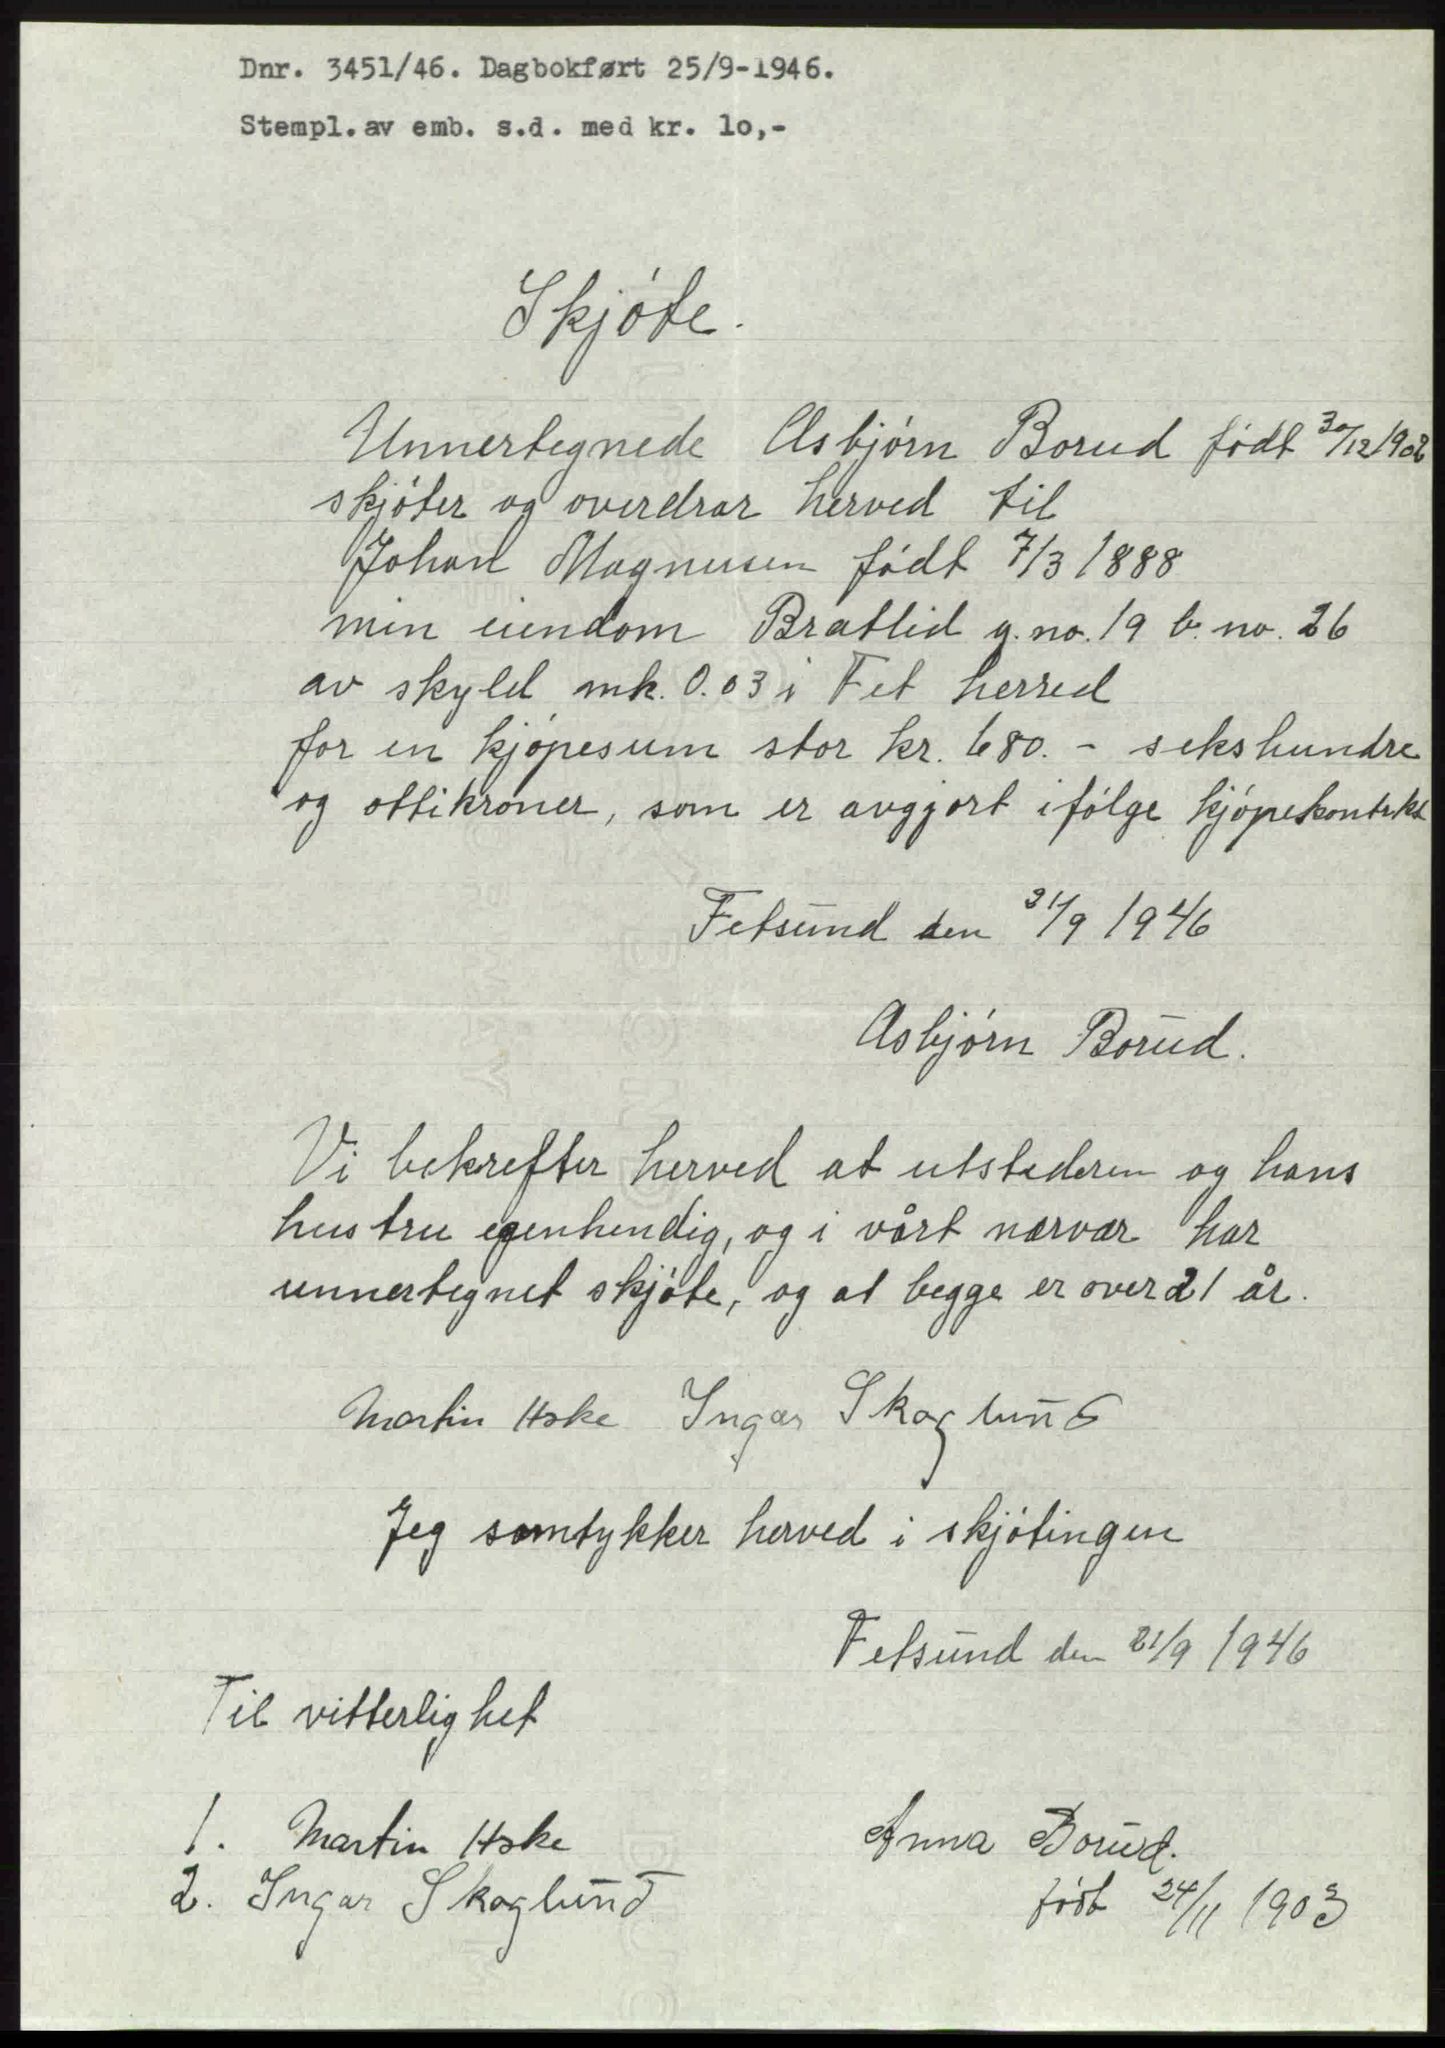 Dnr. 3451/46. Dagbokført 25/9-1946.
Stempl. av emb. s.d. med kr. 1o,-
Skjóte.
Unnertegnede Asbjórn Borud fódt 30/12 1902
skjóter og overdrar herved til
Johan Magnusen fódt 7/3 1888
min eiendom Bratlid g. no. 19 b. no. 26
av skyld mk. 0.03 i Fet herred
for en kjópesum stor kr. 680. - sekshundre
og ottikroner, som er avgjort ifólge kjópekontrkt
Fetsund den 21/9 1946
Asbjórn Borud.
Vi bekrefter herved at utstederen og hans
hustru egenhendig, og i vårt nærvær har
unnertegnet skjóte, og at begge er over 21 år.
Martin Hske Ingar Skoglund
Jeg samtykker herved i skjótingen
Fetsund den 21/9 1946
Til vitterlighet
1. Martin Hske
Anna Borud.
2. Ingar Skoglund
fódt 24/11 1903